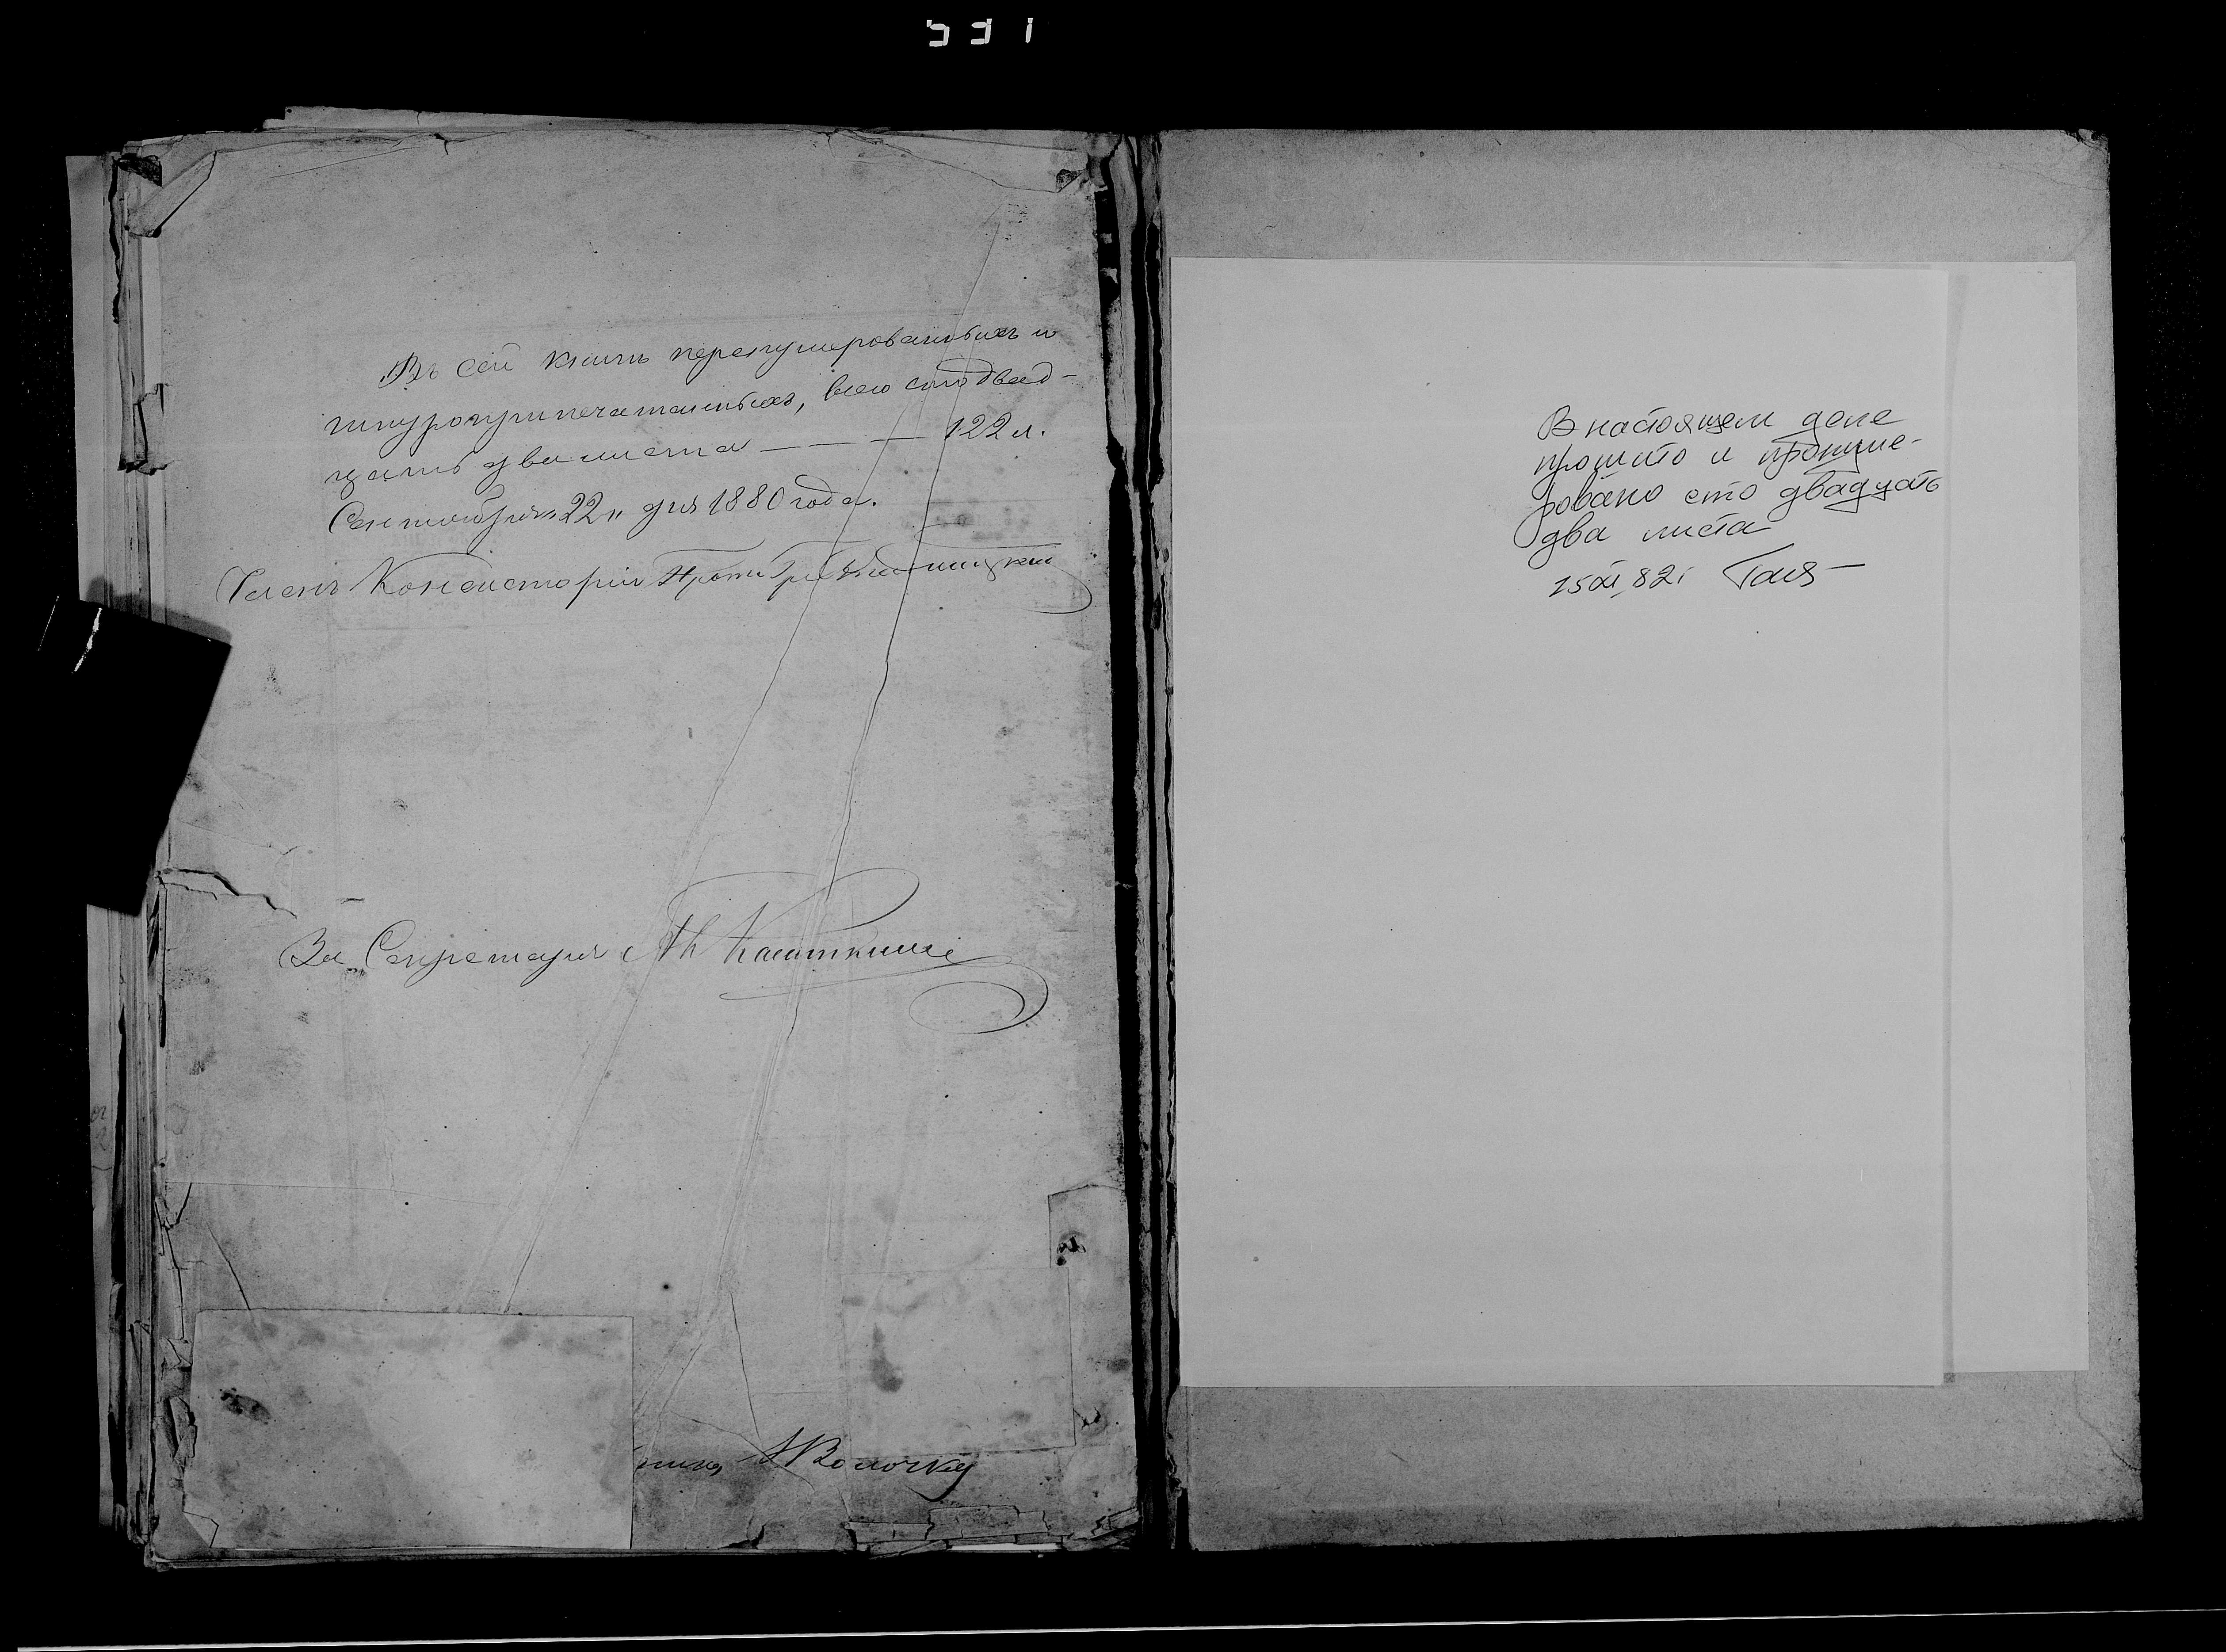 Въ сей книгѣ перенумерованныхъ и
шнуроприпечатанныхъ, всего сто двад-
цать два листа — — — 122 л.
Сентября „22„ дня 1880 года.
Членъ Консисторіи Прот.
За Секретаря
В настоящем деле
прошито и пронуме-
ровано сто двадцать
два листа
15 XI 82г